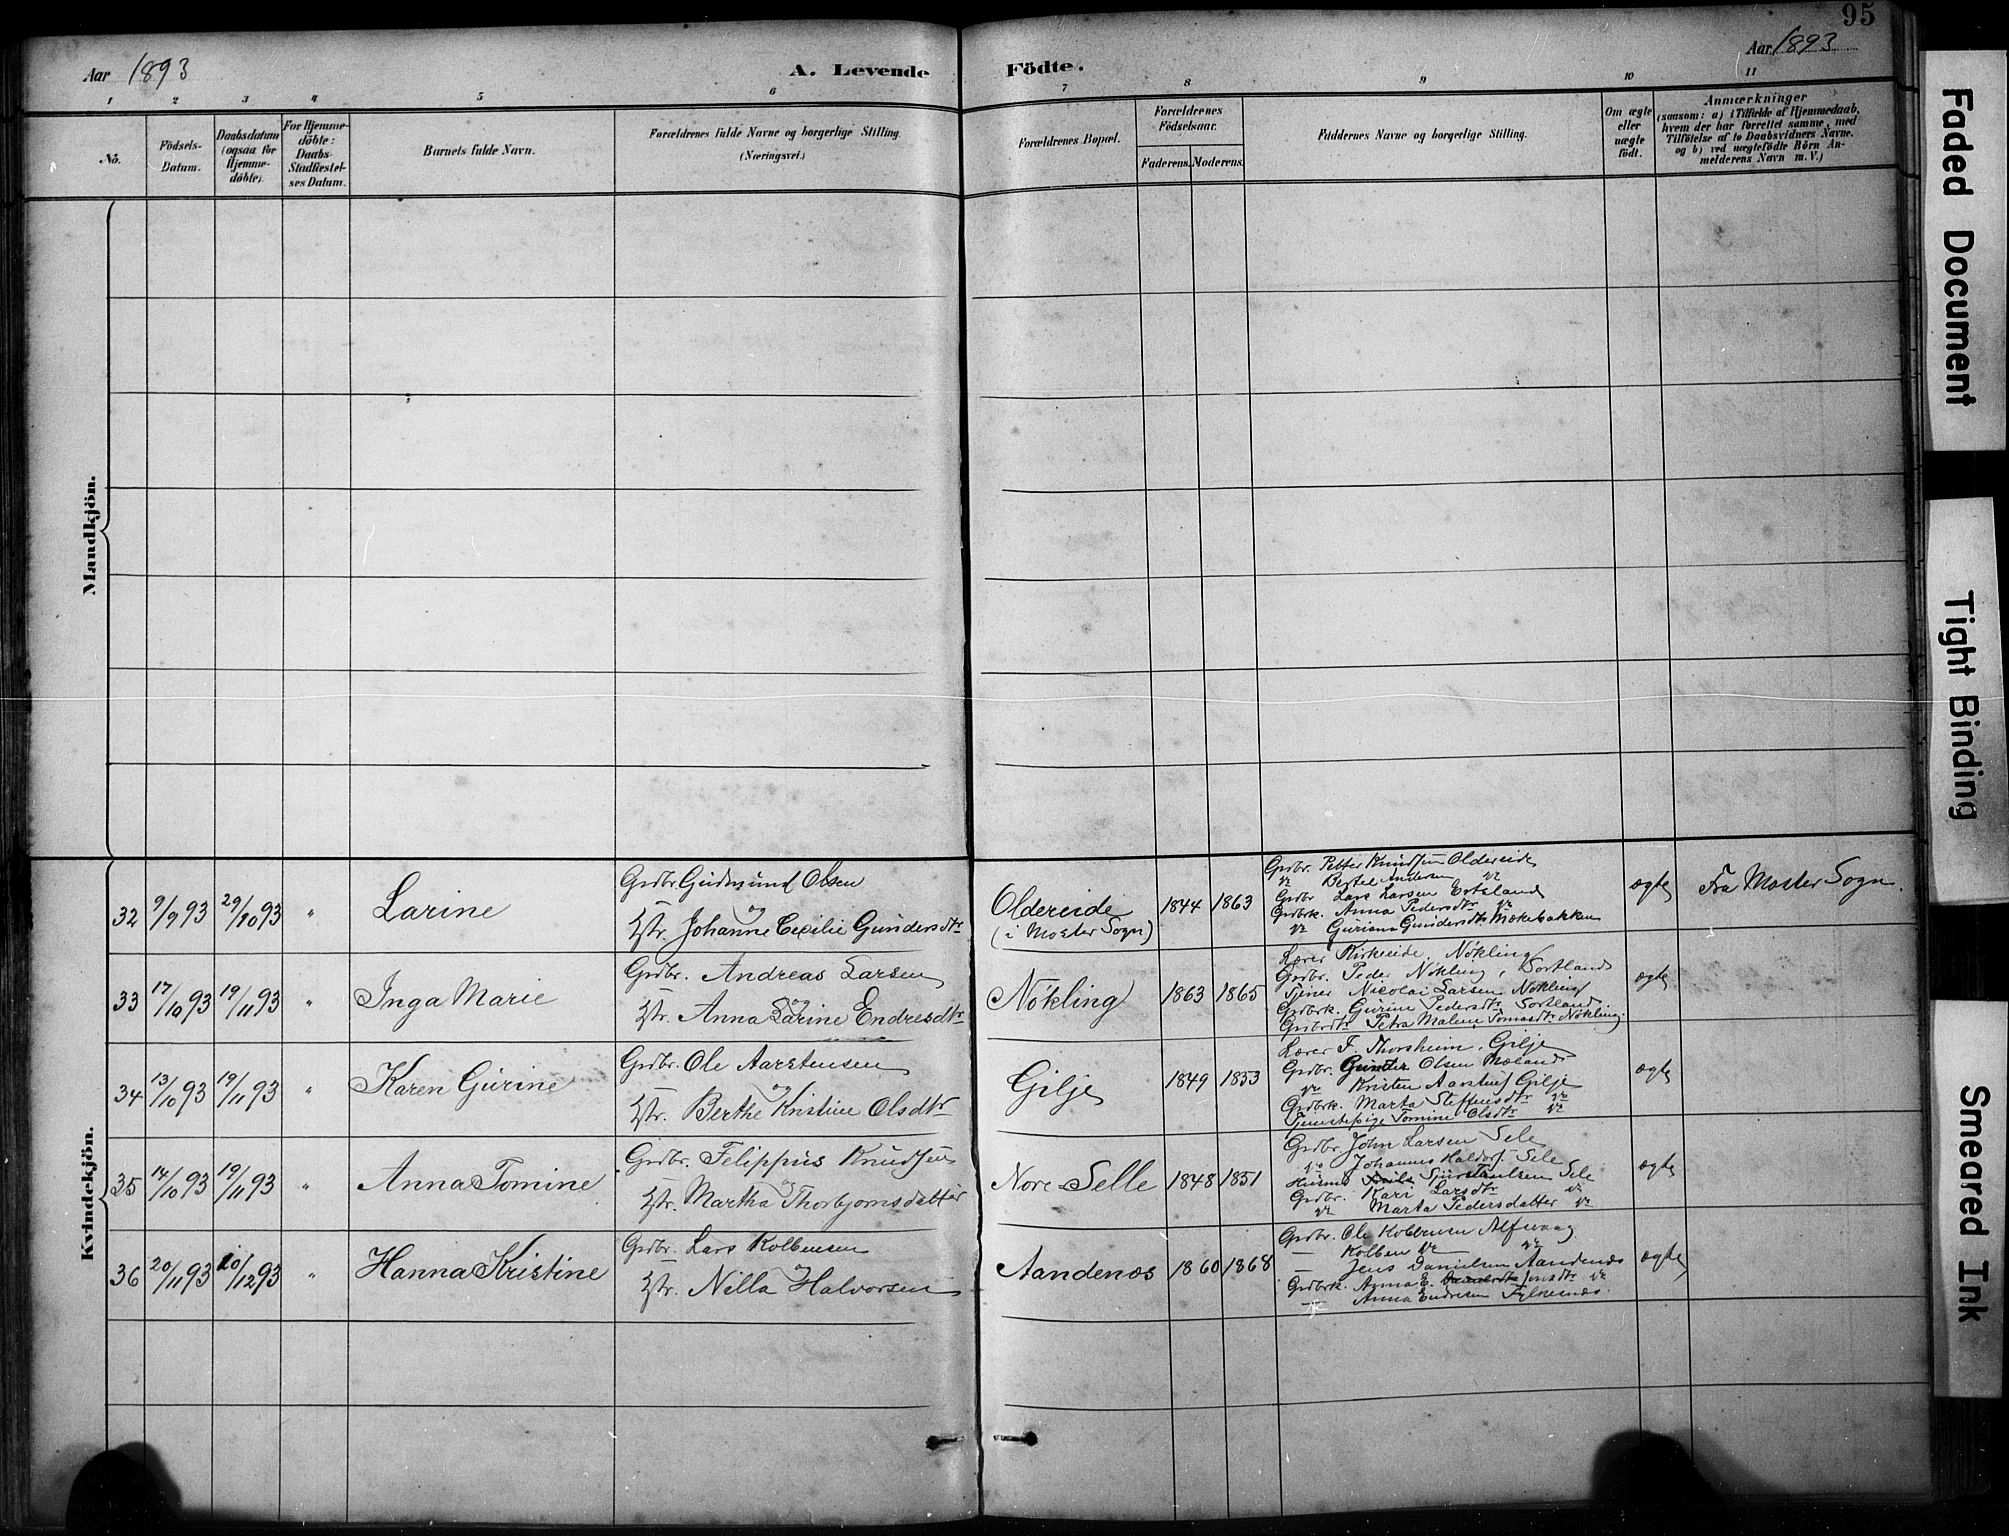 95
Aar 1893
A. Levende Födte.
Aar 1893
1 2 3 4 5 6 7 8 9 10 11
No.
Födsels-Datum.
Daabsdatum (ogsaa for Hjemme-döbte).
For Hjemme-döbte: Daabs-Stadfæstel-ses Datum.
Barnets fulde Navn.
Forældrenes fulde Navne og borgerlige Stilling.
(Næringsvei.)
Forældrenes Bopæl.
Forældrenes Födselsaar.
Faderens. Moderens.
Faddernes Navne og borgerlige Stilling.
Om ægte eller uægte født.
Anmærkninger
(saasom: a) i Tilfælde af Hjemmedaab,
hvem der har forrettet samme, med
Tilföielse af to Daabsvidners Navne.
og b) ved uægtefödte Börn An-
melderens Navn m. V.)
Mandkjön.
Kvindekjön.
32 9/9 93 29/10 93 " Larine
Grdbr. Gudmund Olsen
og
Hstr. Johanne Cecilie Gundersdtr
Oldereide
(i Moster Sogn)
1844 1863
Grdbr. Petter Knudsen Oldereide
" Bertel Andersen "
Grdbr Lars Larsen
Grdbrk. Anna Pedersdtr "
" Guriana Gundersdtr Mækebakken
ægte
Fra Moster Sogn.
33 17/10 93 19/11 93 " Inga Marie
Grdbr. Andreas Larsen
og
Hstr. Anna Larine Endresdtr
Nökling
1863 1865
Lærer Kirkeeide, Nökling
Grdbr. Peder Nökling, Sortland
Tjener Nicolai Larsen Nökling
Grdbrk. Gurine Pedersdtr Sortland.
Grdbrdtr Petra Malene Tomasdtr Nökling.
ægte
34 13/10 93 19/11 93 " Karen Gurine
Grdbr. Ole Aarstensen
og
Hstr. Berthe Kristine Olsdtr
Gilje
1849 1853
Lærer F. Thorsheim, Gilje
Grdbr. Gunder Olsen Mæland
" Kristen Aarstens. Gilje
Grdbrk. Marta Steffensdtr "
Tjenestepige Tomine Olsdtr "
ægte
35 14/10 93 19/11 93 " Anna Tomine
Grdbr. Felippus Knudsen
og
Hstr. Martha Thorbjørnsdatter
Nore-Selle
1848 1851
Grdbr John Larsen Sele
" Johannes Haldors. Sele
Husmd Sele
Grdbr. Kari Larsdtr "
" Marta Pedersdatter "
ægte
36 20/11 93 10/12 93 " Hanna Kristine
Grdbr. Lars Kolbensen
og
Hstr. Nilla Halvorsen
Aandenæs
1860 1868
Grdbr. Ole Kolbensen Alfvaag
— Kolben " "
— Jens Danielsen Aandenæs
Grdbrk. Anna E. Jensdtr "
— Anna Endresen Fylkesnæs.
ægte
Faded Document
Tight Binding
Smeared Ink